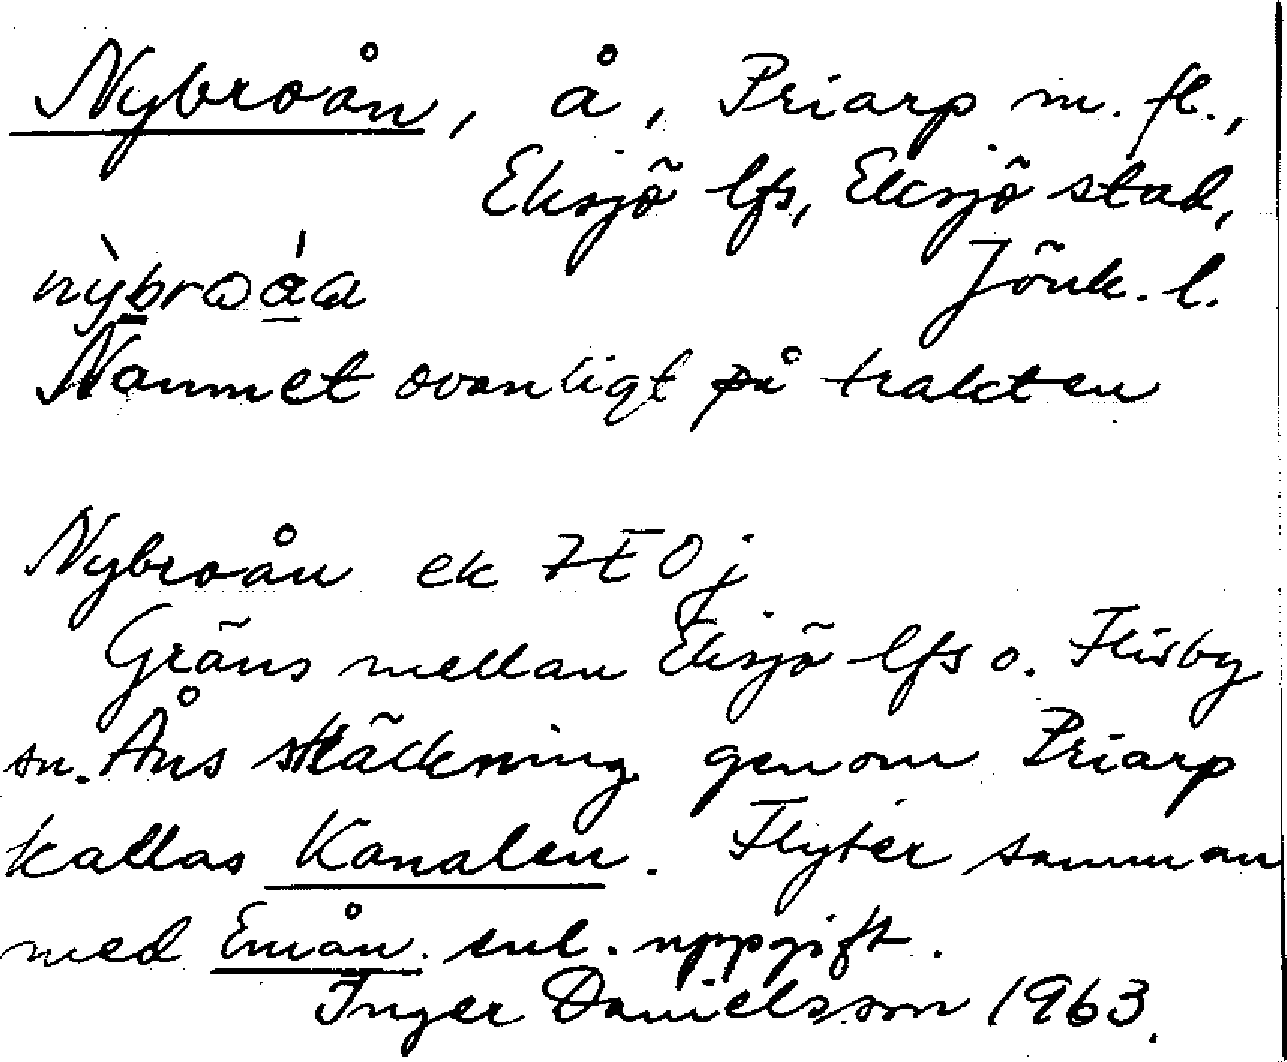 Nybroån, å, Priarp m. fl.,
Eksjö lfs, Eksjö stad,
Jönk. l.
Namnet ovanligt på trakten
Nybroån ek 7E0j
Gräns mellan Eksjö lfs o. Flisby
sn. Åns sträckning genom Priarp
kallas Kanalen. Flyter samman
med Emån. enl. uppgift.
Inger Danielsson 1963.